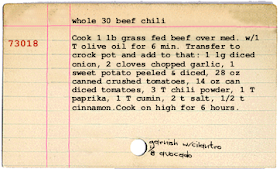 whole 30 beef chili
73018
Cook 1 lb grass fed beef over med. w/1
T olive oil for 6 min. Transfer to
crock pot and add to that: 1 lg diced
onion, 2 cloves chopped garlic, 1
sweet potato peeled & diced, 28 oz
canned crushed tomatoes, 14 oz can
diced tomatoes, 3 T chili powder, 1 T
paprika, 1 T cumin, 2 t salt, 1/2 t
cinnamon.Cook on high for 6 hours.
garnish w/cilantro
& avocado